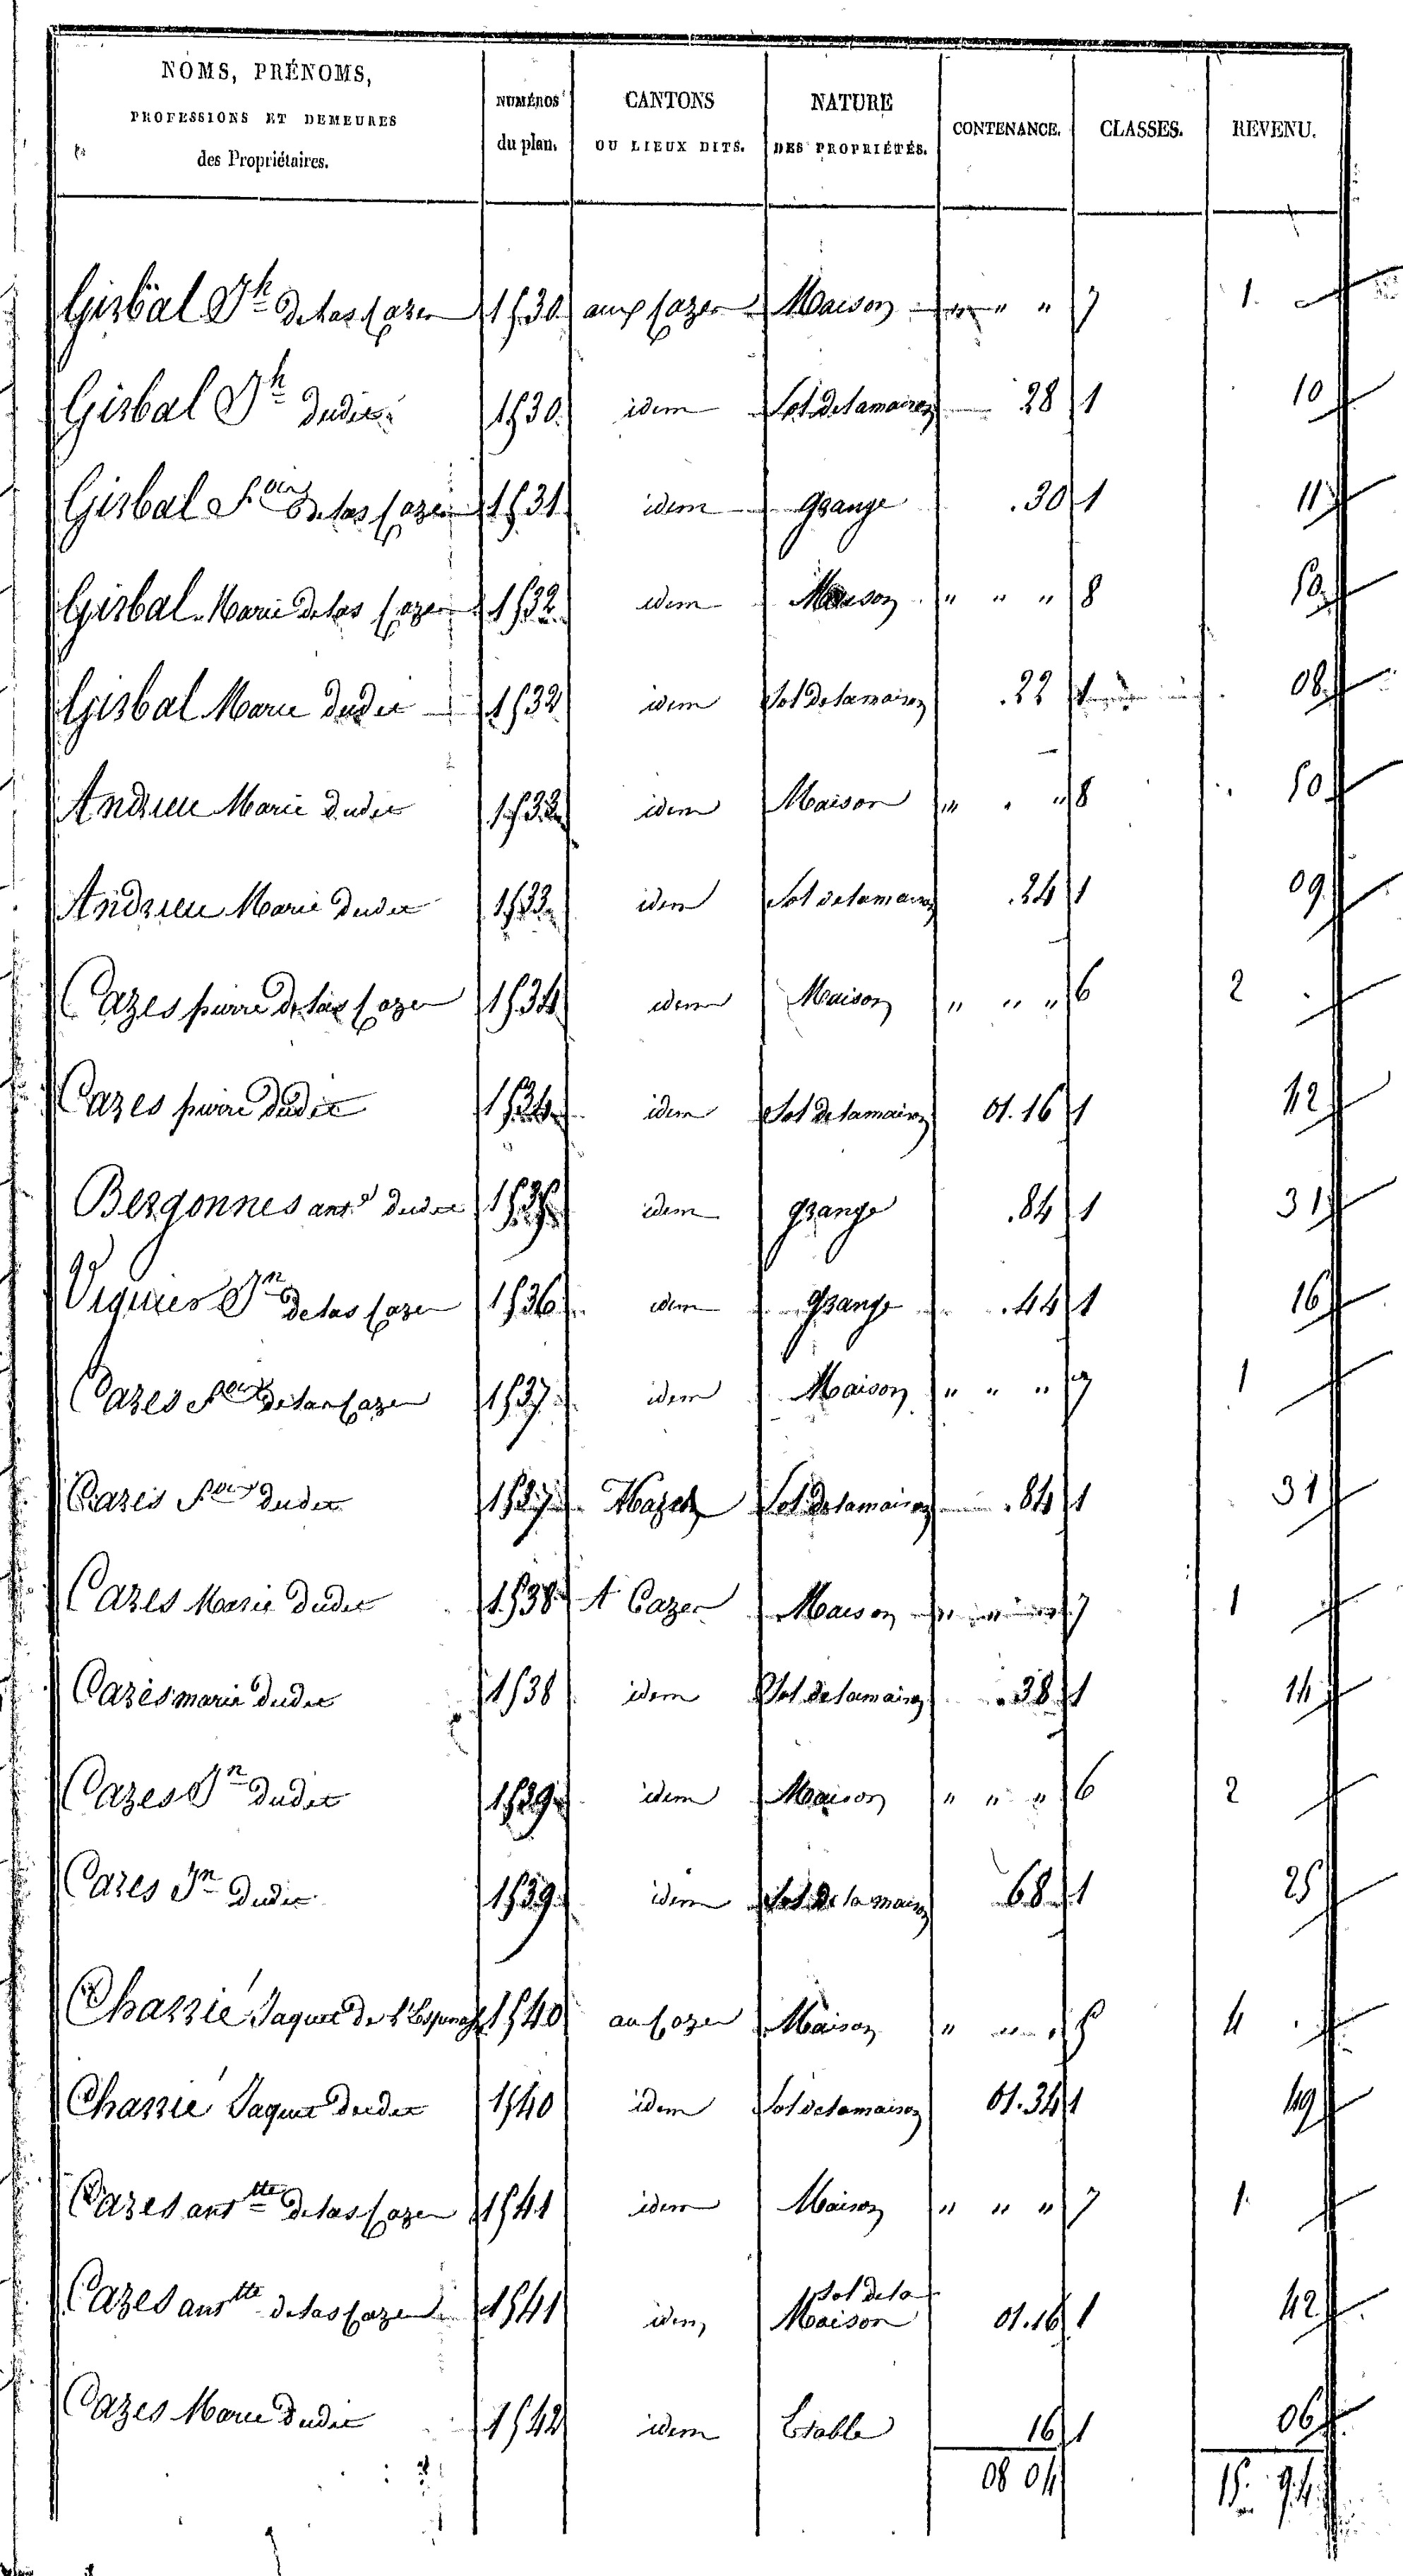 NOMS, PRÉNOMS, PROFESSIONS ET DEMEURES des Propriétaires. NUMÉROS du plan. CANTONS OU LIEUX DITS. NATURE DES PROPRIÉTÉS. CONTENANCE. CLASSES. REVENU.
Gisbal Jh de las Cazes 1530 aux Cazes Maison " " " 7 1.
Gisbal Jh dudit 1530 idem Sol de la maison 28 1 10
Gisbal de las Cazes 1531 idem grange .30 1 11
Gisbal Marie de las Cazes 1532 idem Maison " " " 8 50
Gisbal Marie dudit 1532 idem Sol de la maison .22 1 08
Andrieu Marie dudit 1533 idem Maison " " " 8 50
Andrieu Marie dudit 1533 idem Sol de la maison .24 1 09
Cazes pierre de las Cazes 1534 idem Maison " " " 6 2
Cazes pierre dudit 1534 idem Sol de la maison 01.16 1 42
Bergonnes ant. dudit 1535 idem grange .84 1 31
Viguier Jn de las Cazes 1536 idem grange .44 1 16
Cazes de las Cazes 1537 idem Maison " " " 7 1
Cazes dudit 1537 Sol de la maison .84 1 31
Cazes Marie dudit 1538 A Cazes Maison " " " 7 1
Cazes marie dudit 1538 idem Sol de la maison .38 1 14
Cazes Jn dudit 1539 idem Maison " " " 6 2
Cazes Jn dudit 1539 idem Sol de la maison 68 1 25
Chassié Jaques de 1540 au Cazes Maison " " " 5 4
Chassié Jaques dudit 1540 idem Sol de la maison 01.34 1 49
Cazes antte de las Cazes 1541 idem Maison " " " 7 1
Cazes antte de las Cazes 1541 idem Sol de la Maison 01.16 1 42
Cazes Marie dudit 1542 idem Etable 16 1 06
08 04 15. 94